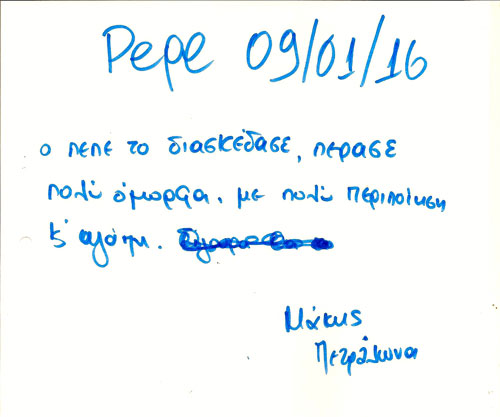 Pepe 09/01/16
Ο ΠΕΠΕ ΤΟ ΔΙΑΣΚΕΔΑΣΕ, ΠΕΡΑΣΕ
πολύ όμορφα. με πολύ περιποίηση
κ' αγάπη.
Μάκης
Πετράλωνα